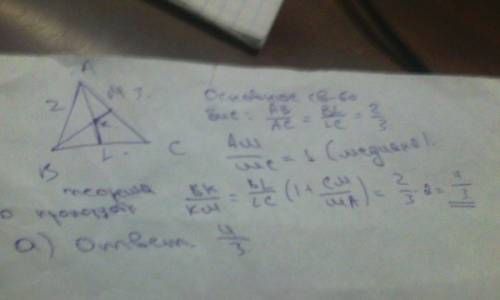 A
2
M
3.
K
B
L
C
Основное св-во
бис: AB/AC = BL/LC = 2/3
AM/MC = 1 (медиана).
теорема
о пропорци
BK/KM = BL/LC (1 + CM/MA) = 2/3 · 2 = 4/3
а) ответ 4/3